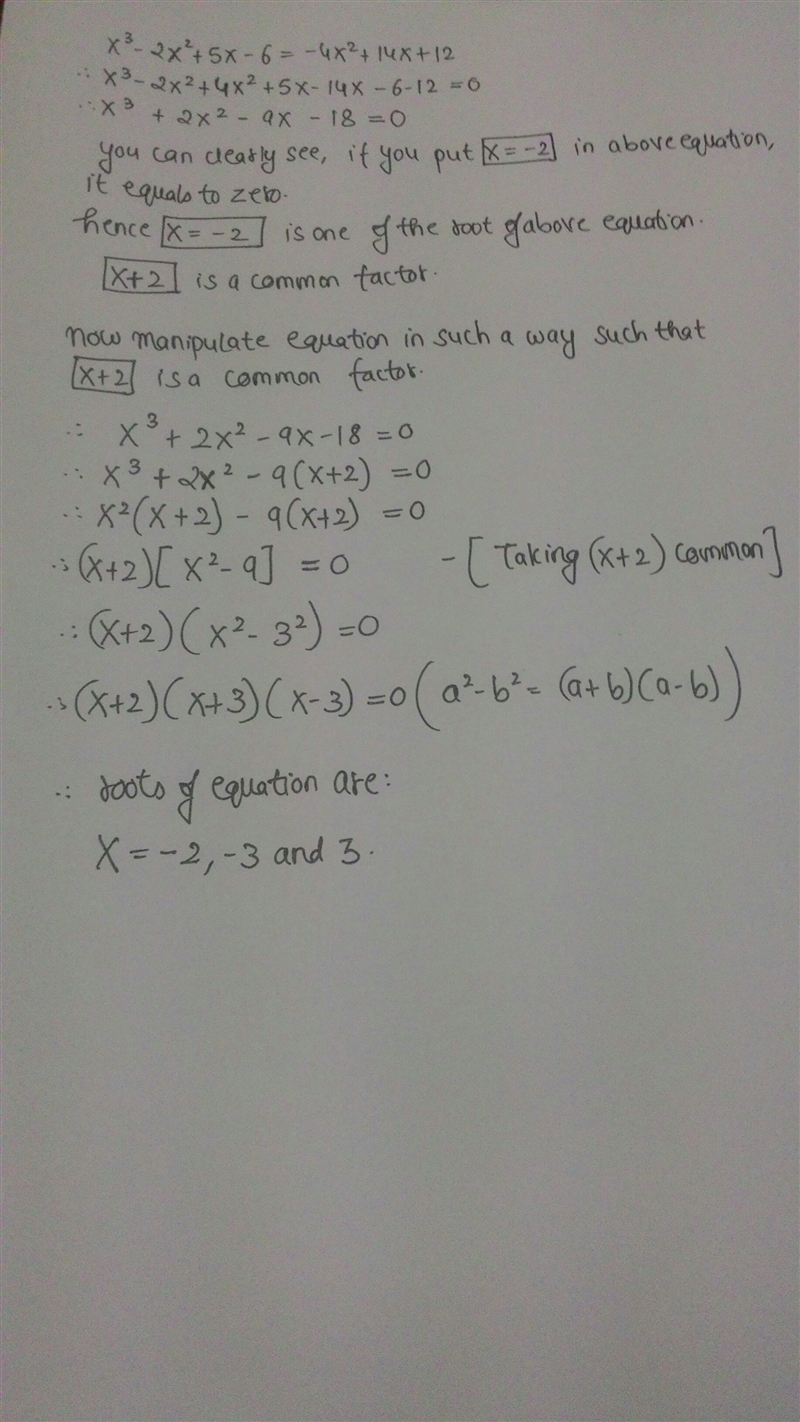 x³- 2x²+5x-6 = -4x²+14x+12
∴ x³-2x²+4x²+5x-14x-6-12 =0
∴ x³ + 2x² - 9x - 18 =0
you can clearly see, if you put x=-2 in above equation,
it equals to zero.
hence x=-2 is one of the root of above equation.
x+2 is a common factor.
now manipulate equation in such a way such that
x+2 is a common factor.
∴ x³+2x²-9x-18 =0
∴ x³+2x²-9(x+2) =0
∴ x²(x+2)-9(x+2) =0
∴ (x+2)[x²-9] =0 - [Taking (x+2) common]
∴ (x+2)(x²-3²)=0
∴ (x+2)(x+3)(x-3)=0 (a²-b²= (a+b)(a-b))
∴ roots of equation are:
x=-2,-3 and 3.